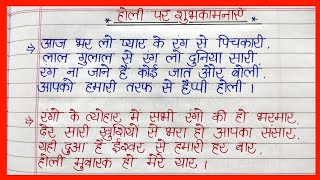 * होली पर शुभकामनाएँ *
→ आज भर लो प्यार के रंग से पिचकारी,
लाल गुलाल से रंग लो दुनिया सारी
रंग ना जाने है कोई जात और बोली,
आपको हमारी तरफ से हैप्पी होली ।
→ रंगो के त्योहार में सभी रंगो की हो भरमार,
ढेर सारी खुशियों से भरा हो आपका संसार,
यही दुआ है ईश्वर से हमारी हर बार,
होली मुबारक हो मेरे यार ।